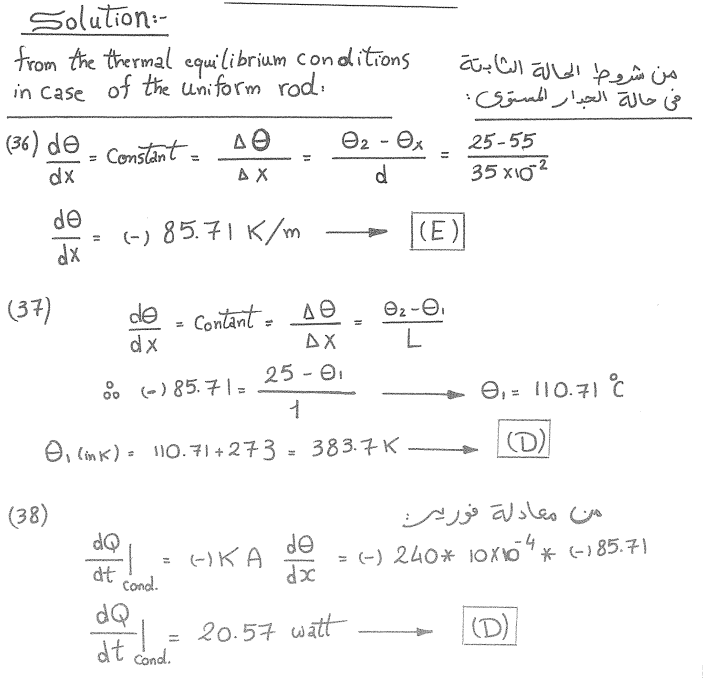 Solution:-
from the thermal equilibrium conditions
in case of the uniform rod.
من شروط الحالة الثابتة
فى حالة الجدار المستوى:
(36) dθ/dx = Constant = Δθ/ΔX = (θ₂ - θₓ)/d = (25-55)/(35x10⁻²)
dθ/dx = (-) 85.71 K/m ⟶ (E)
(37) dθ/dx = Contant = Δθ/ΔX = (θ₂-θ₁)/L
∴ (-) 85.71 = (25 - θ₁)/1 ⟶ θ₁ = 110.71 °C
θ₁ (in K) = 110.71+273 = 383.7 K ⟶ (D)
(38) من معادلة فورير:
dQ/dt|Cond. = (-) K A dθ/dx = (-) 240* 10X10⁻⁴ * (-) 85.71
dQ/dt|Cond. = 20.57 watt ⟶ (D)